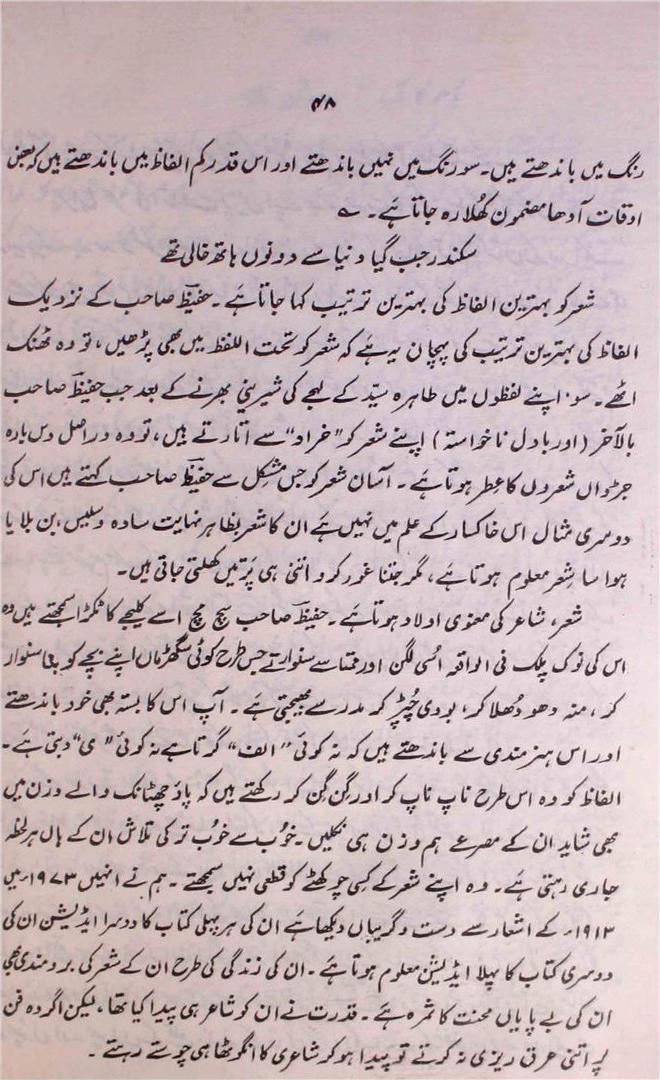 ۴۸
رنگ میں باندھتے ہیں۔ سو رنگ میں نہیں باندھتے اور اس قدر کم الفاظ میں باندھتے ہیں کہ بعض
اوقات آدھا مضمون کھلا رہ جاتا ہے۔ ؎
سکندر جب گیا دنیا سے دونوں ہاتھ خالی تھے
شعر کو بہترین الفاظ کی بہترین ترتیب کہا جاتا ہے۔ حفیظؔ صاحب کے نزدیک
الفاظ کی بہترین ترتیب کی پہچان یہ ہے کہ شعر کو تحت اللفظ میں بھی پڑھیں، تو وہ ٹھنک
اٹھے۔ سو اپنے لفظوں میں طاہرہ سیّد کے لہجے کی شیرینی بھرنے کے بعد جب حفیظؔ صاحب
بالآخر (اور بادل ناخواستہ) اپنے شعر کو "خراد" سے اتارتے ہیں، تو وہ دراصل دس بارہ
جڑواں شعروں کا عطر ہوتا ہے۔ آسان شعر کو جس مشکل سے حفیظؔ صاحب کہتے ہیں اس کی
دوسری مثال اس خاکسار کے علم میں نہیں ہے ان کا شعر بظاہر نہایت سادہ و سلیس، بن بلایا
ہوا سا شعر معلوم ہوتا ہے، مگر جتنا غور کرو اتنی ہی پَرتیں کھلتی جاتی ہیں۔
شعر، شاعر کی معنوی اولاد ہوتا ہے۔ حفیظؔ صاحب سچ مچ اسے کلیجے کا ٹکڑا سمجھتے ہیں وہ
اس کی نوک پلک فی الواقعہ اُسی لگن اور ممتا سے سنوارتے جس طرح کوئی سگھڑ ماں اپنے بچے کو بنا سنوار
کر، منہ دھو دُھلا کر، بودی چُپڑ کر مدرسے بھیجتی ہے۔ آپ اس کا بستہ بھی خود باندھتے
اور اس ہنرمندی سے باندھتے ہیں کہ نہ کوئی "الف" گرتا ہے نہ کوئی "ی" دبتی ہے۔
الفاظ کو وہ اس طرح ناپ ناپ کر اور گِن گِن کر رکھتے ہیں کہ پاؤ چھٹانک والے وزن میں
بھی شاید ان کے مصرعے ہم وزن ہی نکلیں۔ خوُب سے خوُب تر کی تلاش ان کے ہاں ہر لحظہ
جاری رہتی ہے۔ وہ اپنے شعر کے کسی چوکھٹے کو قطعی نہیں سمجھتے۔ ہم نے انہیں ۱۹۷۳ء میں
۱۹۱۳ء کے اشعار سے دست و گریباں دیکھا ہے ان کی ہر پہلی کتاب کا دوسرا ایڈیشن ان کی
دوسری کتاب کا پہلا ایڈیشن معلوم ہوتا ہے۔ ان کی زندگی کی طرح ان کے شعر کی برومندی بھی
ان کی بے پایاں محنت کا ثمرہ ہے۔ قدرت نے ان کو شاعر ہی پیدا کیا تھا، لیکن اگر وہ فن
پر اتنی عرق ریزی نہ کرتے تو پیدا ہو کر شاعری کا انگوٹھا ہی چوستے رہتے۔